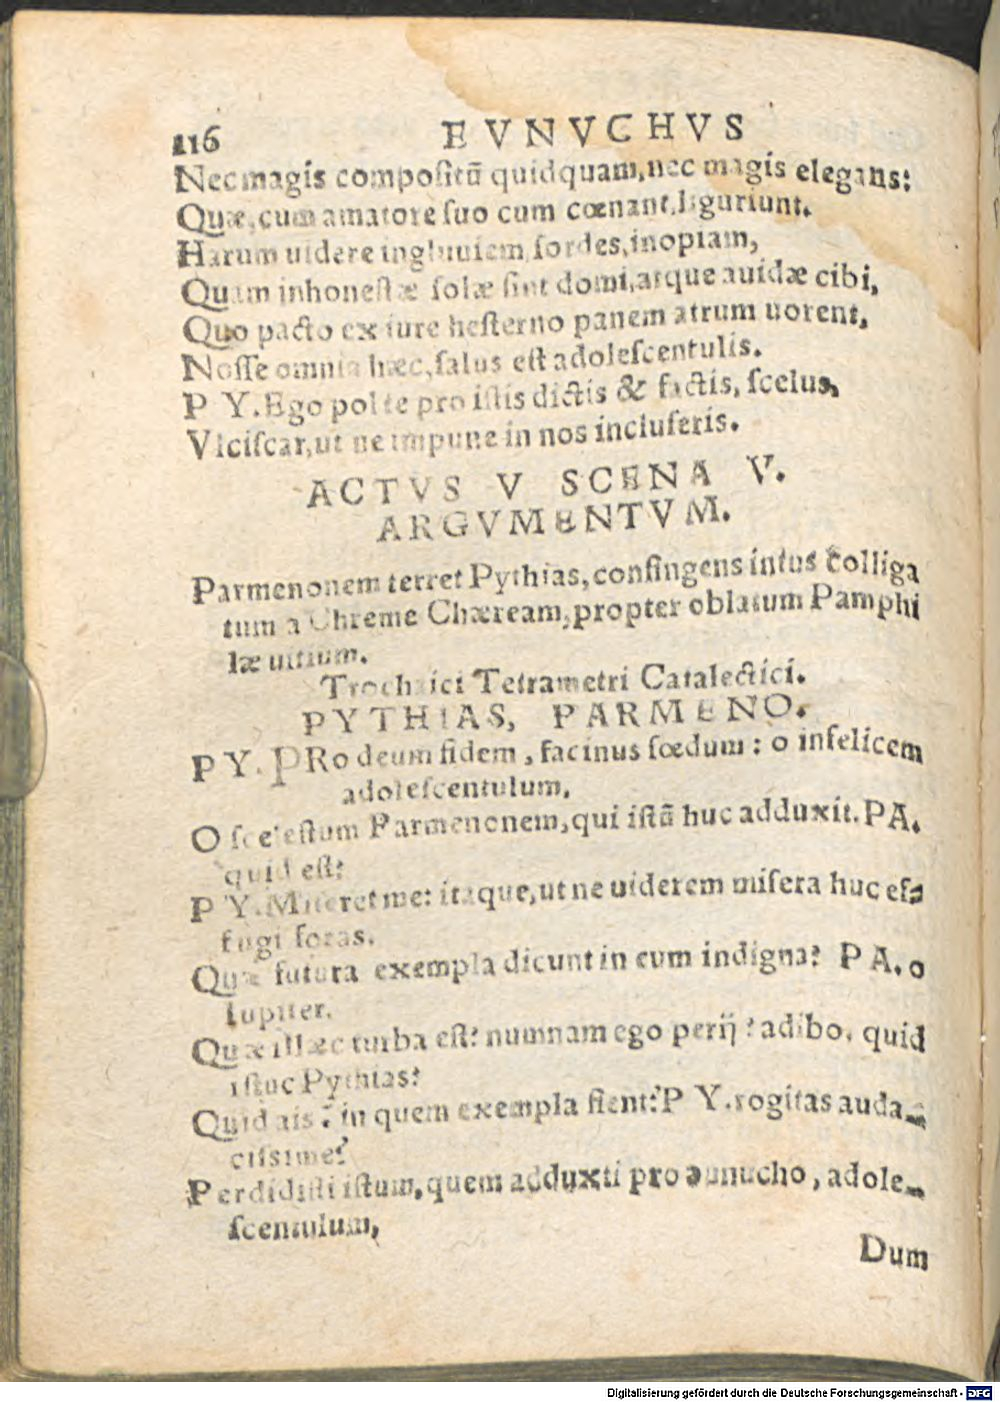 116 EVNVCHVS
Nec magis compositũ quidquam, nec magis elegans:
Quæ, cum amatore suo cum cœnant, liguriunt.
Harum uidere ingluuiem, sordes, inopiam,
Quam inhonestæ solæ sint domi, atque auidæ cibi,
Quo pacto ex iure hesterno panem atrum uorent,
Nosse omnia hæc, salus est adolescentulis.
P Y. Ego pol te pro istis dictis & factis, scelus,
Vlciscar, ut ne impune in nos incluseris.
ACTVS V SCENA V.
ARGVMENTVM.
Parmenonem terret Pythias, confingens intus colliga
tum a Chreme Chæream, propter oblatum Pamphi
læ uitium.
Trochaici Tetrametri Catalectici.
PYTHIAS, PARMENO.
P Y. PRo deum fidem, facinus fœdum: o infelicem
adolescentulum.
O scelestum Parmenonem, qui istũ huc adduxit. PA.
quid est?
P Y. Miseret me: itaque, ut ne uiderem misera huc ef-
fugi foras.
Quæ futura exempla dicunt in eum indigna? P A. o
Iupiter.
Quæ illæc turba est? numnam ego perij? adibo. quid
istuc Pythias?
Quid ais? in quem exempla fient? P Y. rogitas auda-
cissime?
Perdidisti istum, quem adduxti pro eunucho, adole-
scentulum,
Dum
Digitalisierung gefördert durch die Deutsche Forschungsgemeinschaft - DFG